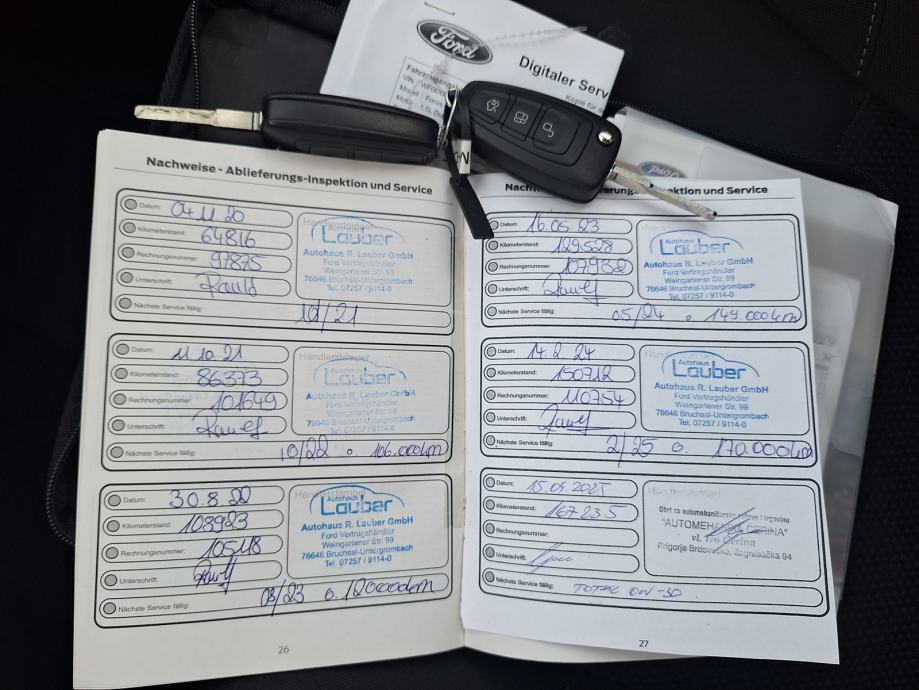 Ford
Digitaler Serv
Kopie für d
VIN
Nachweise - Ablieferungs-Inspektion und Service
Datum: 04.11.20
Kilometerstand: 64816
Rechnungsnummer: 97875
Unterschrift:
Nächste Service fällig: 10/21
Händlerstempel
Autohaus
Lauber
Autohaus R. Lauber GmbH
Ford Vertragshändler
Weingartener Str. 99
76646 Bruchsal-Untergrombach
Tel. 07257 / 9114-0
Datum: 11.10.21
Kilometerstand: 86373
Rechnungsnummer: 101649
Unterschrift:
Nächste Service fällig: 10/22 o. 106.000km
Händlerstempel
Autohaus
Lauber
Autohaus R. Lauber GmbH
Ford Vertragshändler
Weingartener Str. 99
76646 Bruchsal-Untergrombach
Tel. 07257 / 9114-0
Datum: 30.8.22
Kilometerstand: 108923
Rechnungsnummer: 105118
Unterschrift:
Nächste Service fällig: 08/23 o. 120000km
Händlerstempel
Autohaus
Lauber
Autohaus R. Lauber GmbH
Ford Vertragshändler
Weingartener Str. 99
76646 Bruchsal-Untergrombach
Tel. 07257 / 9114-0
26
Nachw erungs-Inspektion und Service
Datum: 16.05.23
Kilometerstand: 129528
Rechnungsnummer: 107932
Unterschrift:
Nächste Service fällig: 05/24 o 149.000km
Autohaus
Lauber
Autohaus R. Lauber GmbH
Ford Vertragshändler
Weingartener Str. 99
76646 Bruchsal-Untergrombach
Tel. 07257 / 9114-0
Datum: 14.2.24
Kilometerstand: 150712
Rechnungsnummer: 110754
Unterschrift:
Nächste Service fällig: 2/25 o. 170.000km
Händlerstempel
Autohaus
Lauber
Autohaus R. Lauber GmbH
Ford Vertragshändler
Weingartener Str. 99
76646 Bruchsal-Untergrombach
Tel. 07257 / 9114-0
Datum: 15.09.2025
Kilometerstand: 167235
Rechnungsnummer:
Unterschrift:
Nächste Service fällig: TOTAL 0W-30
Händlerstempel
Obrt za automehaničarske i trgovinu
"AUTOMEHANIKA CERINA"
vl. Ivo Cerina
Prigorje Brdovečko, Zagrebačka 94
27